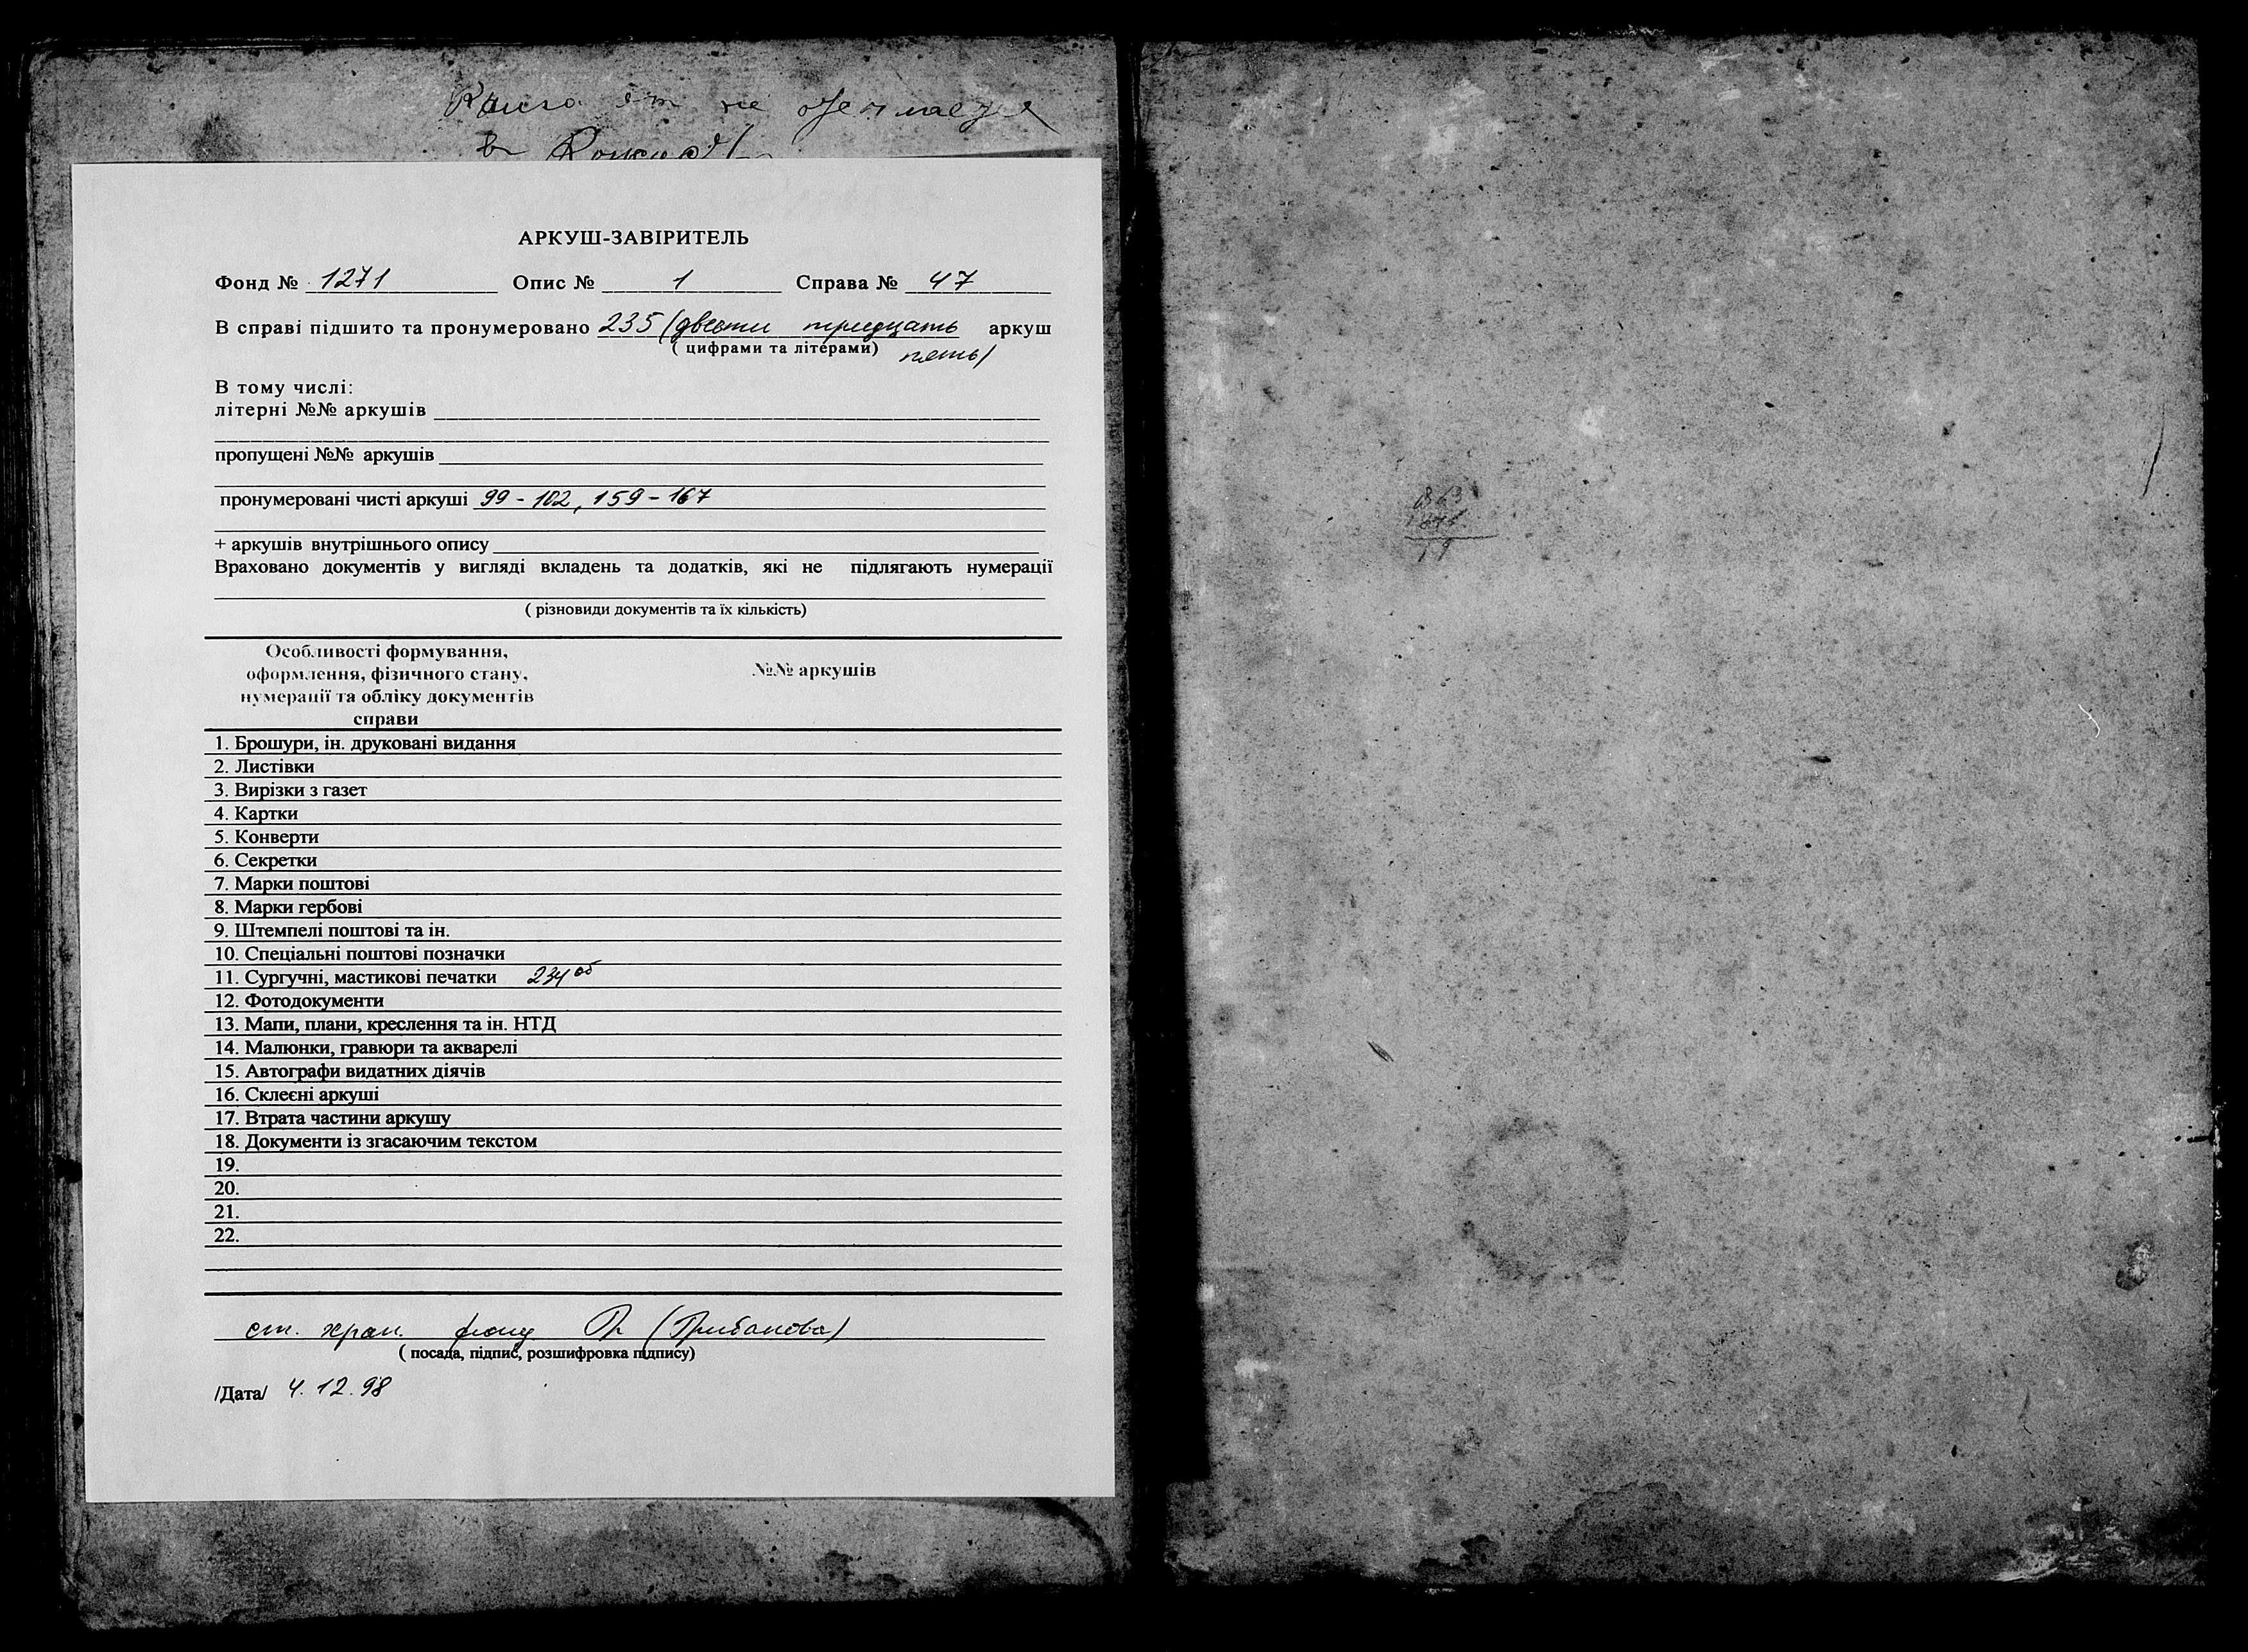 Книга
не
в
АРКУШ-ЗАВІРИТЕЛЬ
Фонд № 1271 Опис № 1 Справа № 47
В справі підшито та пронумеровано 235 (двести тридцать аркуш
( цифрами та літерами) пять)
В тому числі:
літерні №№ аркушів
пропущені №№ аркушів
пронумеровані чисті аркуші 99 - 102, 159 - 167
+ аркушів внутрішнього опису
Враховано документів у вигляді вкладень та додатків, які не підлягають нумерації
( різновиди документів та їх кількість)
Особливості формування,
оформлення, фізичного стану,
нумерації та обліку документів
справи
№№ аркушів
1. Брошури, ін. друковані видання
2. Листівки
3. Вирізки з газет
4. Картки
5. Конверти
6. Секретки
7. Марки поштові
8. Марки гербові
9. Штемпелі поштові та ін.
10. Спеціальні поштові позначки
11. Сургучні, мастикові печатки 234 об
12. Фотодокументи
13. Мапи, плани, креслення та ін. НТД
14. Малюнки, гравюри та акварелі
15. Автографи видатних діячів
16. Склеєні аркуші
17. Втрата частини аркушу
18. Документи із згасаючим текстом
19.
20.
21.
22.
ст. хран. фонд (Грибанова)
( посада, підпис, розшифровка підпису)
/Дата/ 4. 12. 98